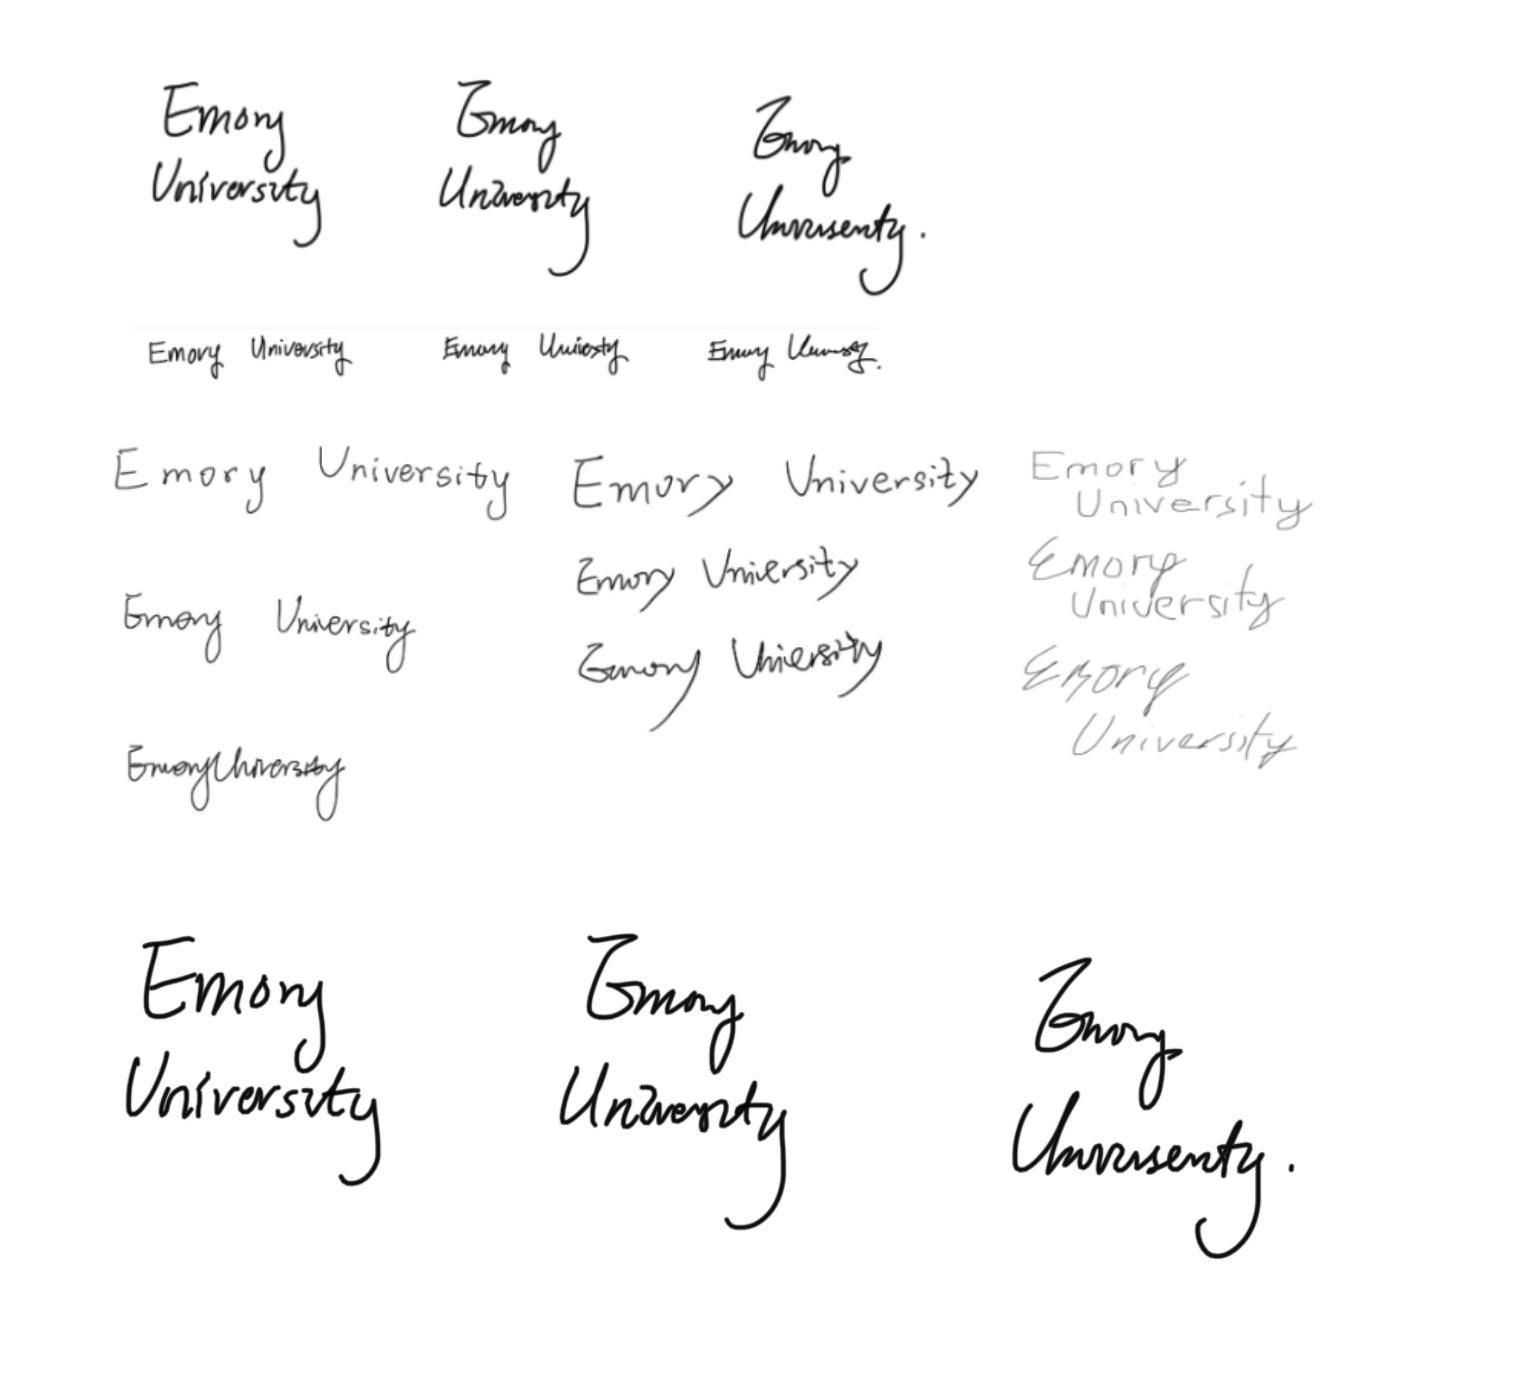 Emory
University
Emory
University
Emory
University.
Emory University
Emory University
Emory University.
Emory University
Emory University
Emory University
Emory University
Emory University
Emory University
Emory
University
Emory
University
Emory
University
Emory
University
Emory
University
Emory
University.